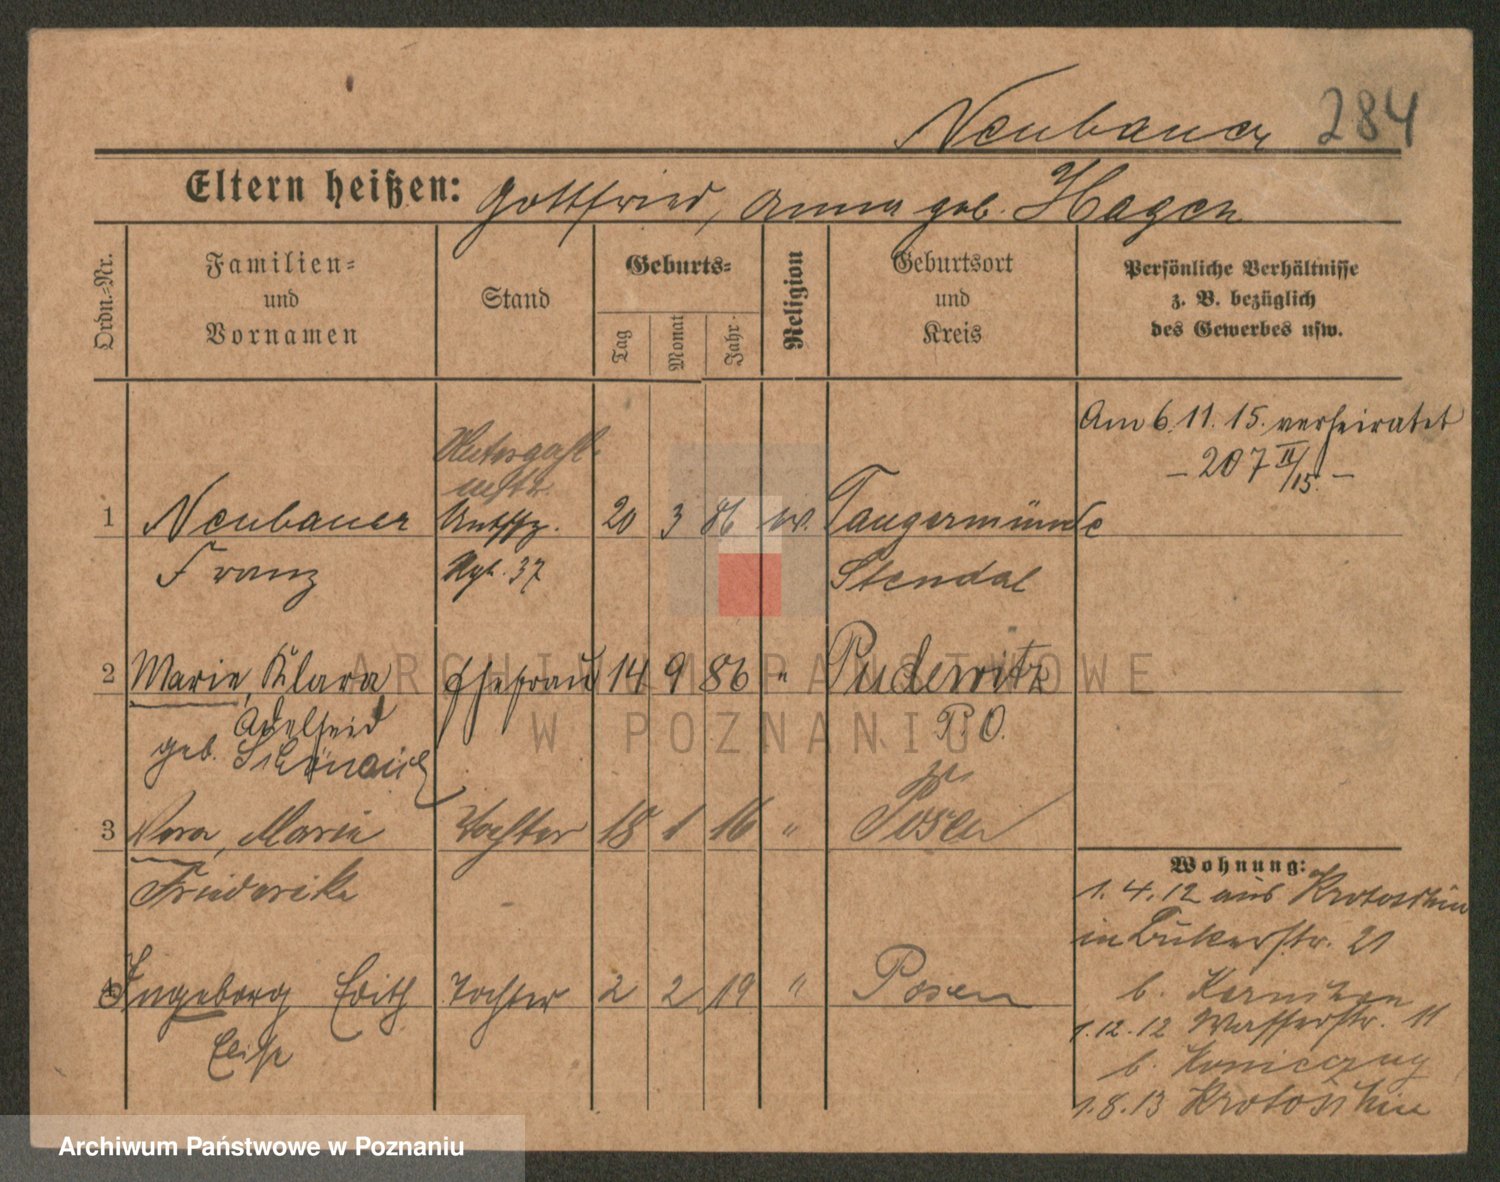 Neubauer 284
Eltern heißen: Gottfried, Anna geb. Hagen
Ordn.-Nr.
Familien-
und
Vornamen
Stand
Geburts-
Tag
Monat
Jahr.
Religion
Geburtsort
und
Kreis
Persönliche Verhältnisse
z. B. bezüglich
des Gewerbes usw.
Am 6.11.15. verheiratet
- 207 II/15. -
1 Neubauer 20 3 86 ev. Tangermünde
Franz Rgt. 37 Stendal
2 Marie, Klara Ehefrau 14 9 86 " Pudewitz
Adelheid P.O.
geb.
3 Vera, Marie Tochter 18 1 16 " Posen
Friederike
4 Ingeborg Edith Tochter 2 2 19 " Posen
Elise
Wohnung:
1.4.12 aus Krotoschin
in Bukerstr. 21
b.
1.12.12 Wasserstr. 11
b.
1.8.13 Krotoschin
ARCHIWUM PAŃSTWOWE
W POZNANIU
Archiwum Państwowe w Poznaniu